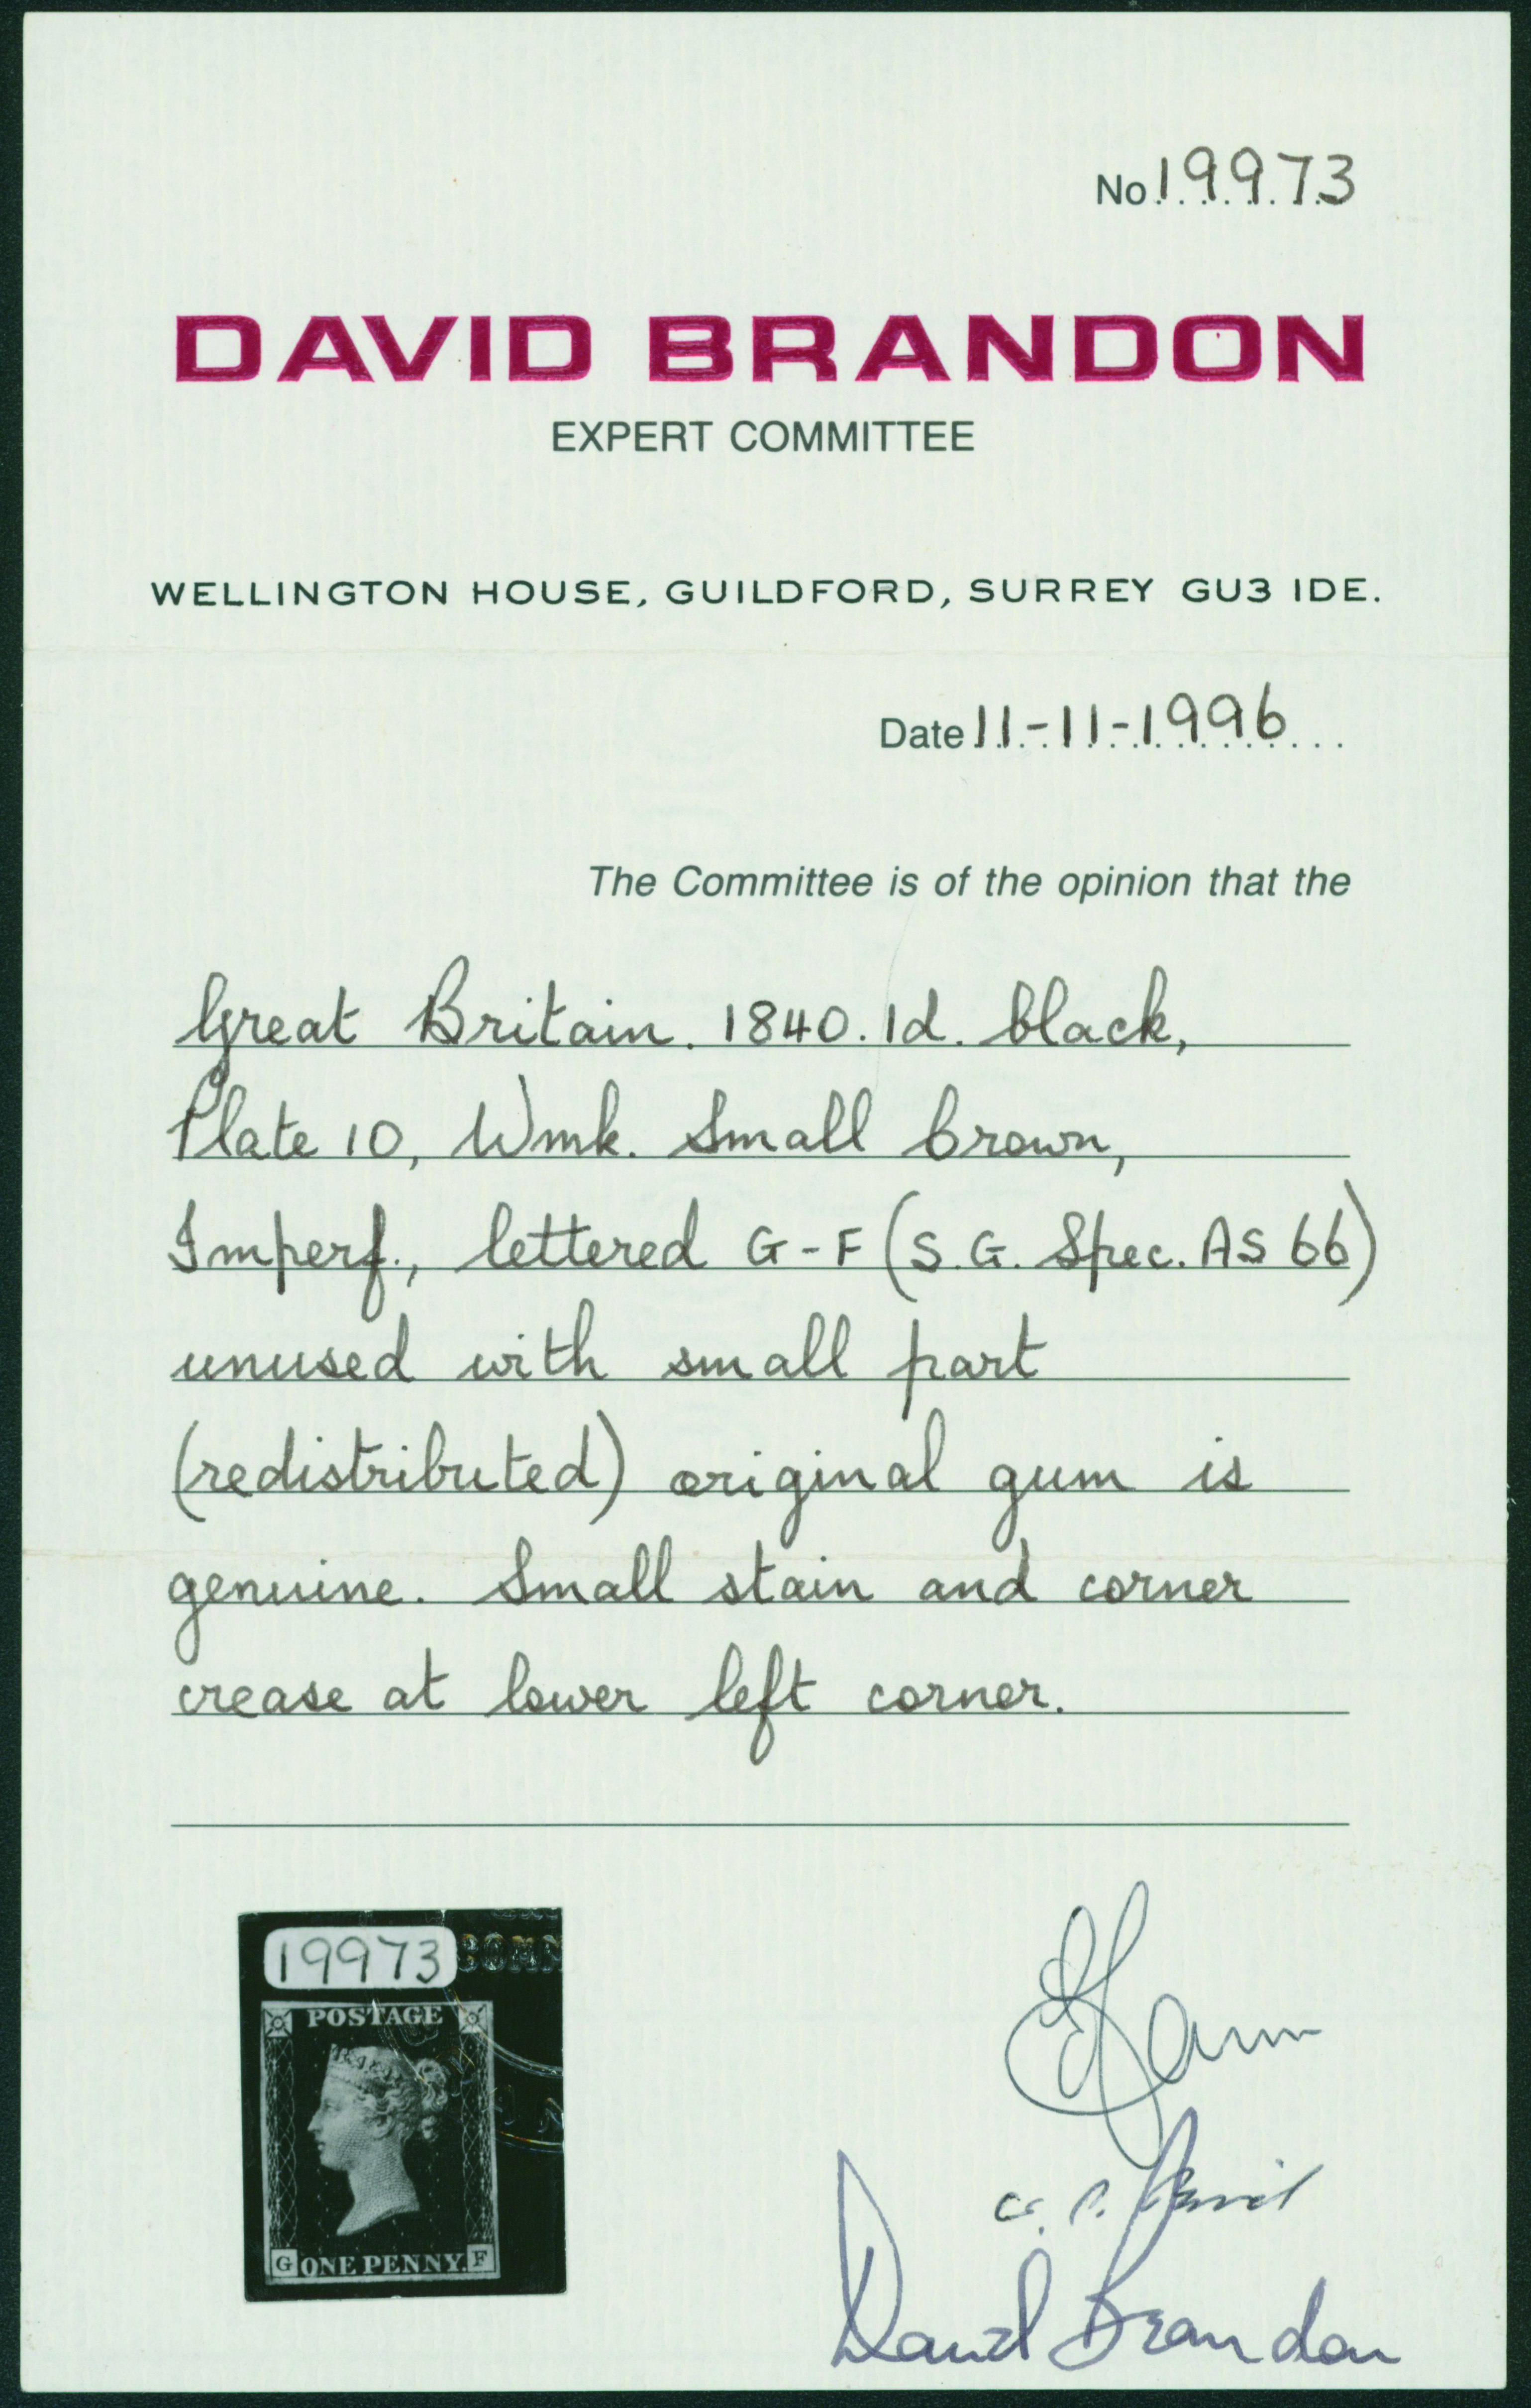 No 19973
DAVID BRANDON
EXPERT COMMITTEE
WELLINGTON HOUSE, GUILDFORD, SURREY GU3 1DE.
Date 11-11-1996
The Committee is of the opinion that the
Great Britain. 1840. 1d. black,
Plate 10, Wmk. Small Crown,
Imperf., lettered G-F (S.G. Spec. AS 66)
unused with small part
(redistributed) original gum is
genuine. Small stain and corner
crease at lower left corner.
19973
COMM
POSTAGE
G ONE PENNY. F
David Brandon